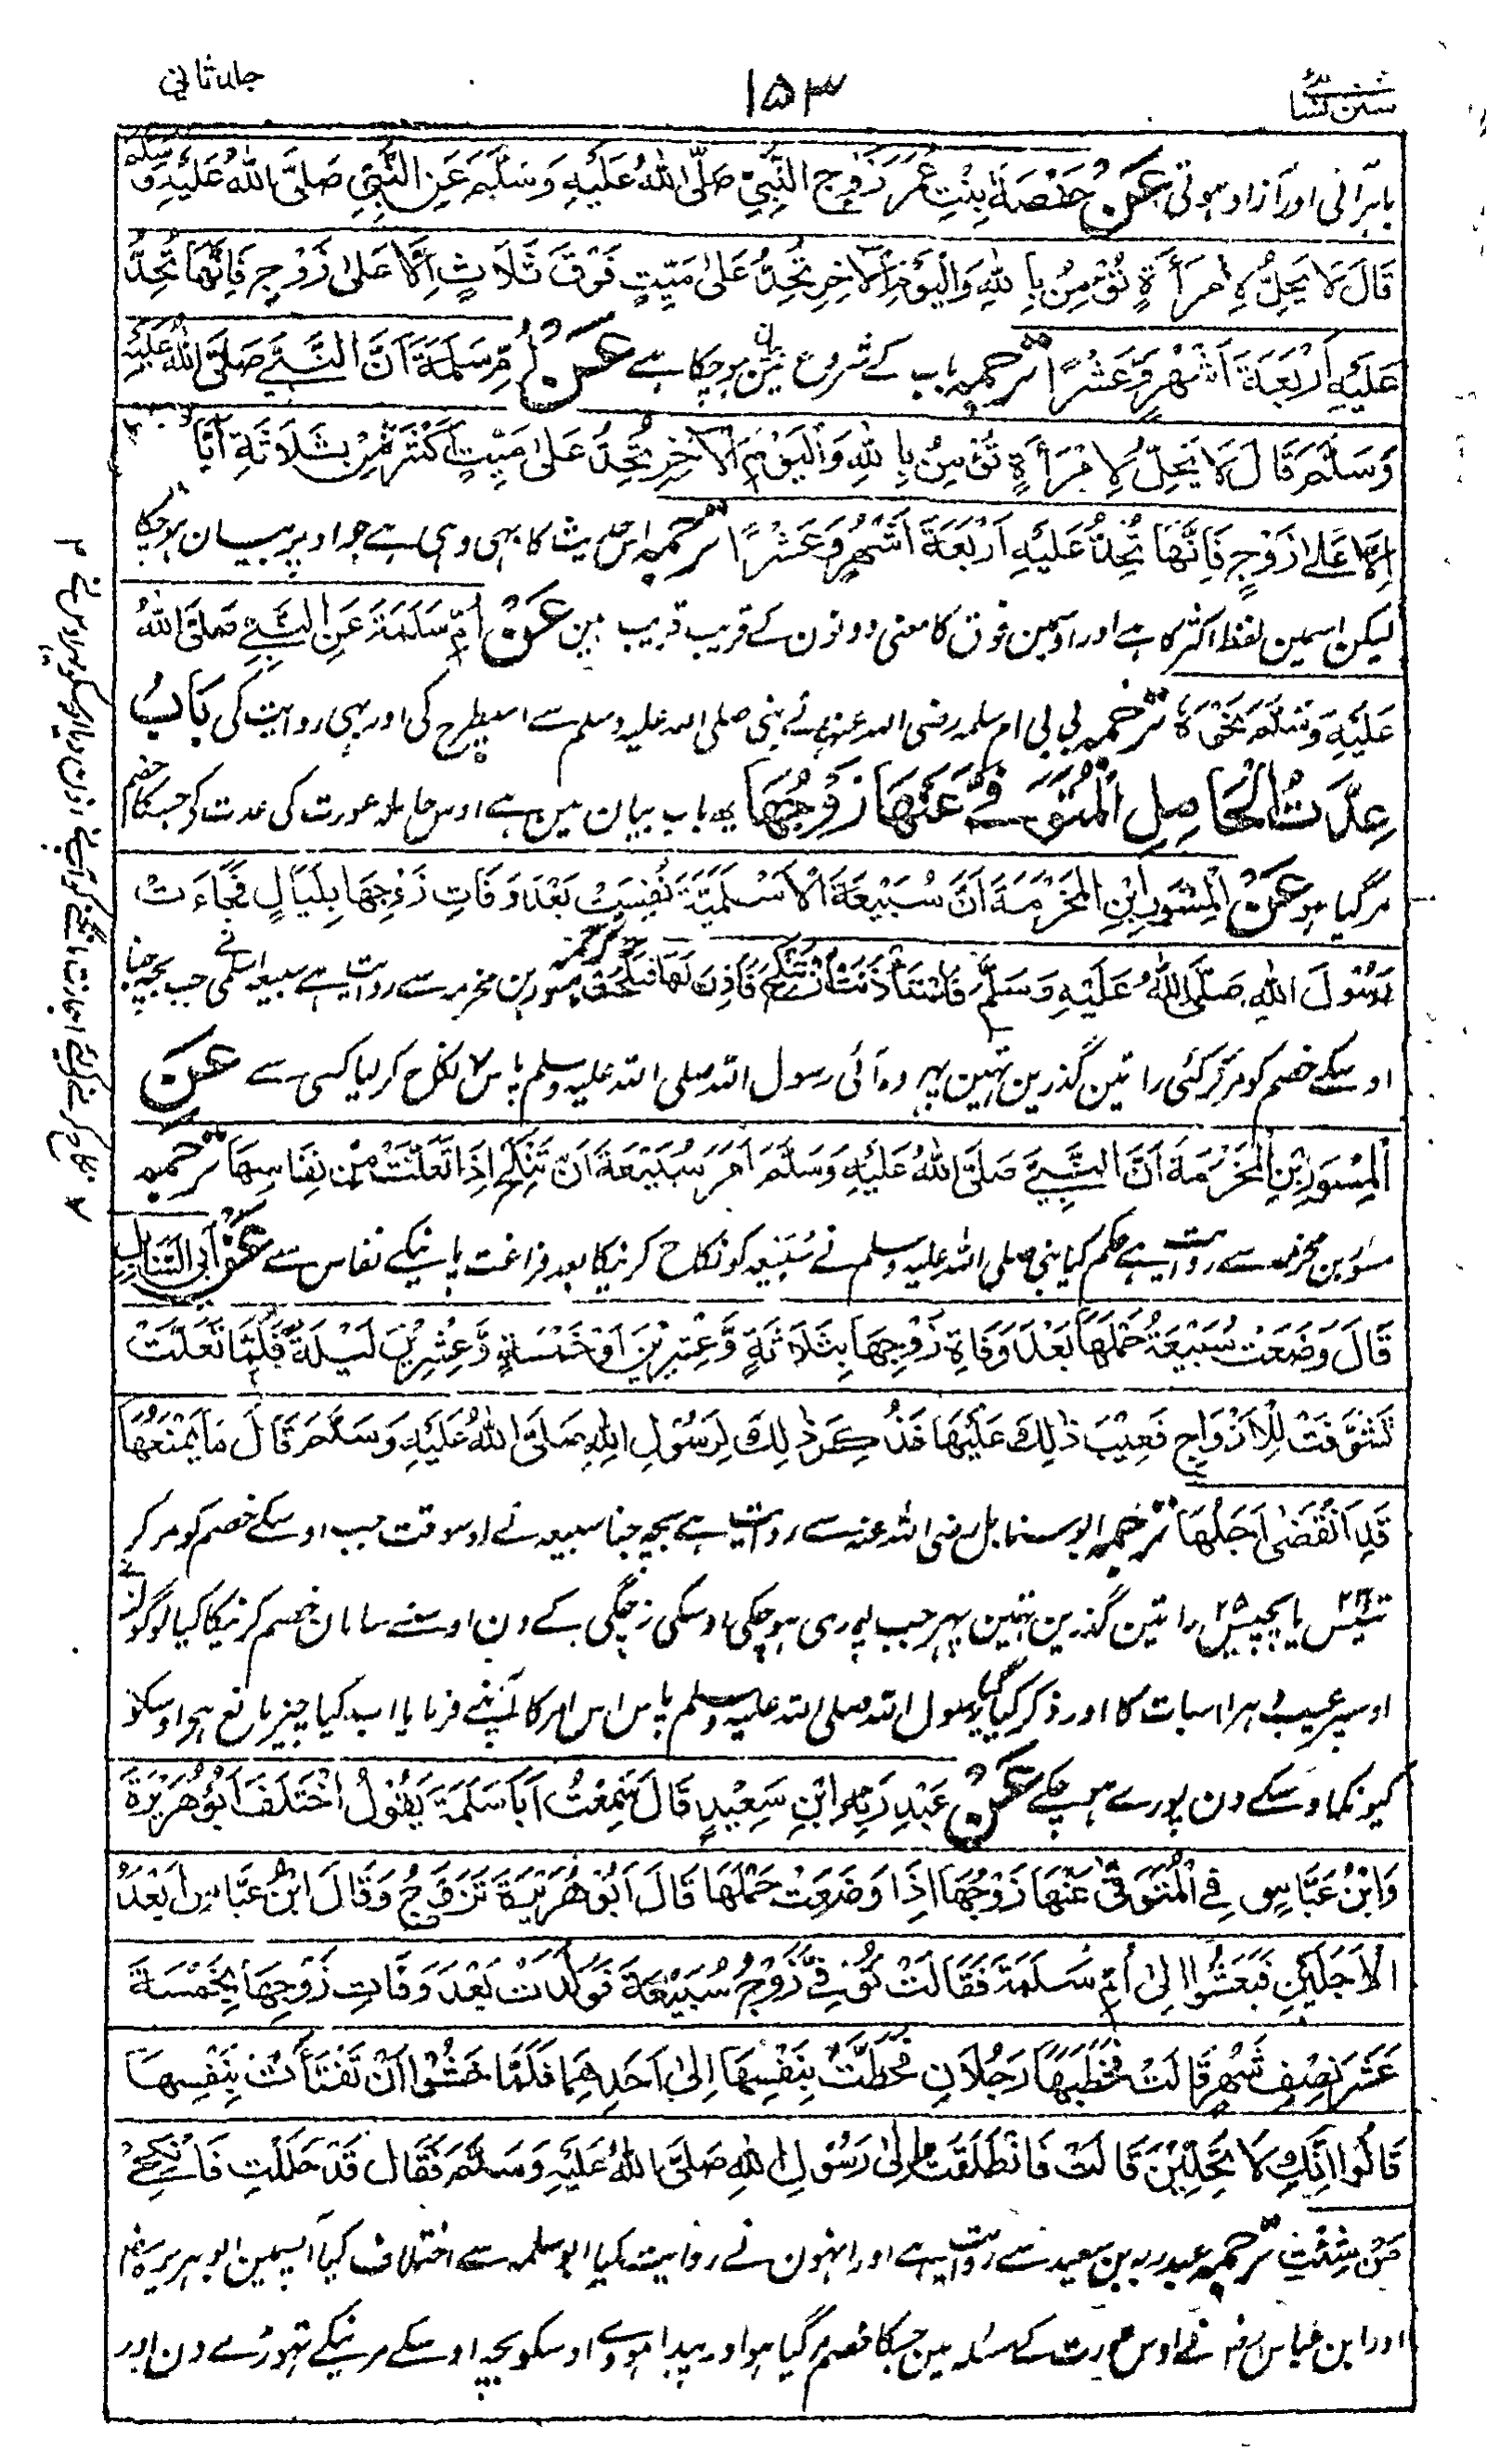 سنن نسائی
۱۵۳
جلد ثانی
باہر آئی اور آزاد ہوتی عَنْ حَفْصَةَ بِنْتِ عُمَرَ زَوْجِ النَّبِيِّ صَلَّى اللهُ عَلَيْهِ وَسَلَّمَ عَنِ النَّبِيِّ صَلَّى اللهُ عَلَيْهِ وَسَلَّمَ
قَالَ لَا يَحِلُّ لِامْرَأَةٍ تُؤْمِنُ بِاللهِ وَالْيَوْمِ الْاٰخِرِ تُحِدُّ عَلٰى مَيِّتٍ فَوْقَ ثَلَاثٍ اِلَّا عَلٰى زَوْجٍ فَاِنَّهَا تُحِدُّ
عَلَيْهِ اَرْبَعَةَ اَشْهُرٍ وَّعَشْرًا ترجمہ باب کے شروع میں بیان ہوچکا ہے عَنْ اُمِّ سَلَمَةَ اَنَّ النَّبِيَّ صَلَّى اللهُ عَلَيْهِ
وَسَلَّمَ قَالَ لَا يَحِلُّ لِامْرَأَةٍ تُؤْمِنُ بِاللهِ وَالْيَوْمِ الْاٰخِرِ تُحِدُّ عَلٰى مَيِّتٍ اَكْثَرَ مِنْ ثَلَاثَةِ اَيَّامٍ
اِلَّا عَلٰى زَوْجٍ فَاِنَّهَا تُحِدُّ عَلَيْهِ اَرْبَعَةَ اَشْهُرٍ وَعَشْرًا ترجمہ اس حدیث کا بہی وہی ہے جو اوپر بیان ہوچکا
لیکن اسمین لفظ اکثر کا ہے اور اوسمین فوق کا معنی دونون کے قریب قریب ہین عَنْ اُمِّ سَلَمَةَ عَنِ النَّبِيِّ صَلَّى اللهُ
عَلَيْهِ وَسَلَّمَ نَحْوَهُ ترجمہ بی بی ام سلمہ رضی اللہ عنہا نے نبی صلی اللہ علیہ وسلم سے اسیطرح کی اور بہی روایت کی بَابُ
عِدَّتُ الْحَامِلِ الْمُتَوَفّٰى عَنْهَا زَوْجُهَا یہ باب بیان مین ہے اوس حاملہ عورت کی عدت کو جسکا خصم
مرگیا ہو عَنْ الْمِسْوَرِ ابْنِ الْمَخْرَمَةَ اَنَّ سُبَيْعَةَ الْاَسْلَمِيَّةَ نُفِسَتْ بَعْدَ وَفَاتِ زَوْجِهَا بِلَيَالٍ فَجَاءَتْ
رَسُوْلَ اللهِ صَلَّى اللهُ عَلَيْهِ وَسَلَّمَ فَاسْتَأْذَنَتْ اَنْ تَنْكِحَ فَاَذِنَ لَهَا فَنَكَحَتْ ترجمہ مسور بن مخرمہ سے روایت ہے سبیعہ اسلمی نے جب بچہ جنا
اوسکے خصم کو مرکر کئی راتین گذرین تہین پہر وہ آئی رسول اللہ صلی اللہ علیہ وسلم پاس ۷ نکاح کر لیا کسی سے عَنِ
الْمِسْوَرِ بْنِ الْمَخْرَمَةَ اَنَّ النَّبِيَّ صَلَّى اللهُ عَلَيْهِ وَسَلَّمَ اَمَرَ سُبَيْعَةَ اَنْ تَنْكِحَ اِذَا تَعَلَّتْ مِنْ نِفَاسِهَا ترجمہ
مسور بن مخرمہ سے روایت ہے حکم کیا نبی صلی اللہ علیہ وسلم نے سُبَیْعہ کو نکاح کرنیکا بعد فراغت پانیکے نفاس سے عَنْ اَبِي السَّنَابِلِ
قَالَ وَضَعَتْ سُبَيْعَةُ حَمْلَهَا بَعْدَ وَفَاةِ زَوْجِهَا بِثَلَاثَةٍ وَّعِشْرِيْنَ اَوْ خَمْسَةٍ وَّعِشْرِيْنَ لَيْلَةً فَلَمَّا تَعَلَّتْ
تَشَوَّفَتْ لِلْاَزْوَاجِ فَعِيْبَ ذٰلِكَ عَلَيْهَا فَذُكِرَ ذٰلِكَ لِرَسُوْلِ اللهِ صَلَّى اللهُ عَلَيْهِ وَسَلَّمَ قَالَ مَا يَمْنَعُهَا
قَدِ انْقَضٰى اَجَلُهَا ترجمہ ابوسنابل رضی اللہ عنہ سے روایت ہے بچہ جنا سبیعہ نے اوسوقت جب اوسکے خصم کو مرکر
تئیس یا پچیس ۲۵ راتین گذرین تہین پہر جب پوری ہوچکی اوسکی زچگی کے دن اوسنے سامان خصم کرنیکا کیا لوگون نے
اوسپر عیب دہرا اسبات کا اور ذکر کیا گیا رسول اللہ صلی اللہ علیہ وسلم پاس اس امر کا آپنے فرمایا اب کیا چیز مانع ہے اوسکو
کیونکہ اوسکے دن پورے ہوچکے عَنْ عَبْدِ رَبِّهِ ابْنِ سَعِيْدٍ قَالَ سَمِعْتُ اَبَا سَلَمَةَ يَقُوْلُ اخْتَلَفَ اَبُوْ هُرَيْرَةَ
وَابْنُ عَبَّاسٍ فِي الْمُتَوَفّٰى عَنْهَا زَوْجُهَا اِذَا وَضَعَتْ حَمْلَهَا قَالَ اَبُوْ هُرَيْرَةَ تَزَوَّجُ وَقَالَ ابْنُ عَبَّاسٍ اَبْعَدُ
الْاَجَلَيْنِ فَبَعَثُوْا اِلٰى اُمِّ سَلَمَةَ فَقَالَتْ تُوُفِّيَ زَوْجُ سُبَيْعَةَ فَوَلَدَتْ بَعْدَ وَفَاتِ زَوْجِهَا بِخَمْسَةَ
عَشَرَ نِصْفِ شَهْرٍ قَالَتْ فَخَطَبَهَا رَجُلَانِ فَحَطَّتْ بِنَفْسِهَا اِلٰى اَحَدِهِمَا فَلَمَّا خَشُوْا اَنْ تَفْتَأتَ بِنَفْسِهَا
قَالُوْا اِنَّكِ لَا تَحِلِّيْنَ قَالَتْ فَانْطَلَقَتْ اِلٰى رَسُوْلِ اللهِ صَلَّى اللهُ عَلَيْهِ وَسَلَّمَ فَقَالَ قَدْ حَلَلْتِ فَانْكِحِيْ
مَنْ شِئْتِ ترجمہ عبدربہ بن سعید سے روایت ہے اور انہون نے روایت کیا ابوسلمہ سے اختلاف کیا آپسمین ابوہریرہ رضہ
اور ابن عباس رضہ نے اوس عورت کے مسئلہ مین جسکا خصم مرگیا ہو اور پیدا ہووے اوسکو بچہ اوسکے مرنیکے تہوڑے دن اور